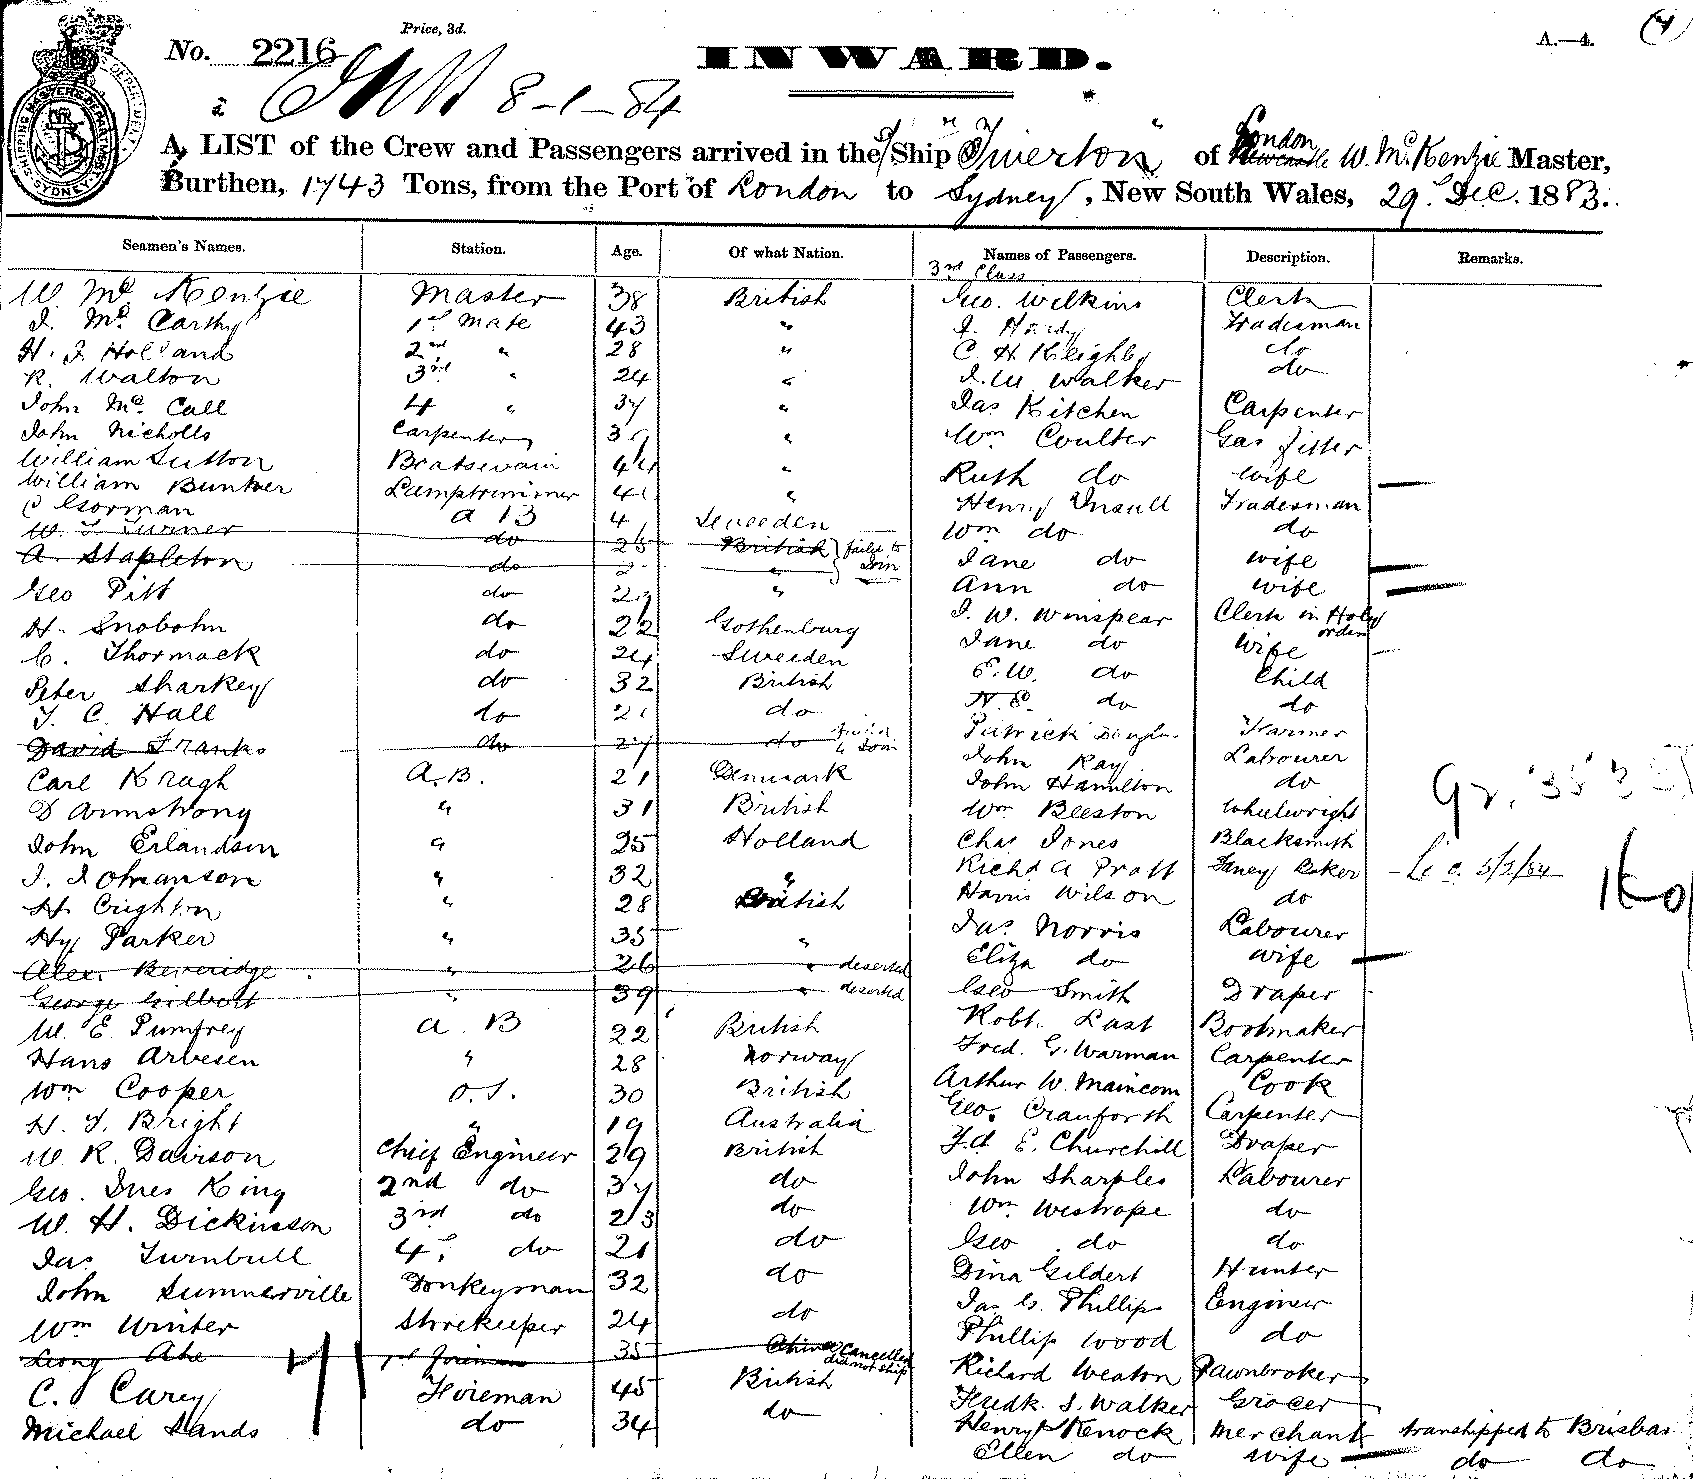 No. 2216
Price, 3d.
INWARD.
A.—4.
8-1-84
A LIST of the Crew and Passengers arrived in the S/Ship "Tiverton" of London Newcastle W. McKenzie Master,
Burthen, 1743 Tons, from the Port of London to Sydney, New South Wales, 29th Dec. 1883.
Seamen's Names. Station. Age. Of what Nation. Names of Passengers. Description. Remarks.
3rd Class
W. Mc Kenzie Master 38 British Geo. Wilkins Clerk
J. Mc Carthy 1st Mate 43 " J. Hardy Tradesman
H. J. Holland 2nd " 28 " C. H. Keighley do
R. Walton 3rd " 24 " J. W. Walker do
John Mc. Call 4 " 37 " Jas Kitchen Carpenter
John Nicholls Carpenter " Wm Coulter Gas Fitter
William Sutton Boatswain 44 " Ruth do wife
William Bunker Lamptrimmer " Henry Insull Tradesman
C Gorman A B Sweeden Wm do do
W. T. Turner do 25 British failed to Join Jane do wife
A. Stapleton do " Ann do wife
Geo Pitt do " J. W. Winspear Clerk in Holy orders
H. Snobohm do 22 Gothenburg Jane do Wife
C. Thormack do 24 Sweeden E. W. do Child
Peter Sharkey do 32 British N. E. do do
T. C. Hall do 21 do Patrick Farmer
David Franks do 27 do failed to Join John Kay Labourer
Carl Kragh A.B. 21 Denmark John Hamilton do
D Armstrong " 31 British Wm Beeston Wheelwright
John Erlandsen " 25 Holland Chas Jones Blacksmith
J. Johanson " 32 " Richd A Pratt Fancy Baker - Lic. 5/2/84
H Crighton " 28 British Harris Wilson do
Hy Parker " 35 " Jas Norris Labourer
Alex. Beveridge " 26 " deserted Eliza do wife
George Gilbert " 39 " deserted Geo Smith Draper
W. E. Pumfrey A. B 22 British Robt. Last Bootmaker
Hans Arvesen " 28 Norway Fred. G. Warman Carpenter
Wm Cooper O.S. 30 British Arthur W. Maincom Cook
H. T. Bright " 19 Australia Geo. Cranforth Carpenter
W. R. Davison Chief Engineer 29 British Fd E. Churchill Draper
Geo. Innes King 2nd do 37 do John Sharples Labourer
W. H. Dickinson 3rd do 23 do Wm Westrope do
Jas Turnbull 4th do 21 do Geo do do
John Summerville Donkeyman 32 do Dina Gildert Hunter
Wm Winter Storekeeper 24 do Jas G. Phillips Engineer
Phillip Wood do
Leong Ahe 1st Foreman 35 China Cancelled did not ship Richard Weaton Pawnbroker
C. Carey Fireman 45 British Fredk. S. Walker Grocer
Michael Sands do 34 do Henry Kenock Merchant transhipped to Brisbane
Ellen do wife do do